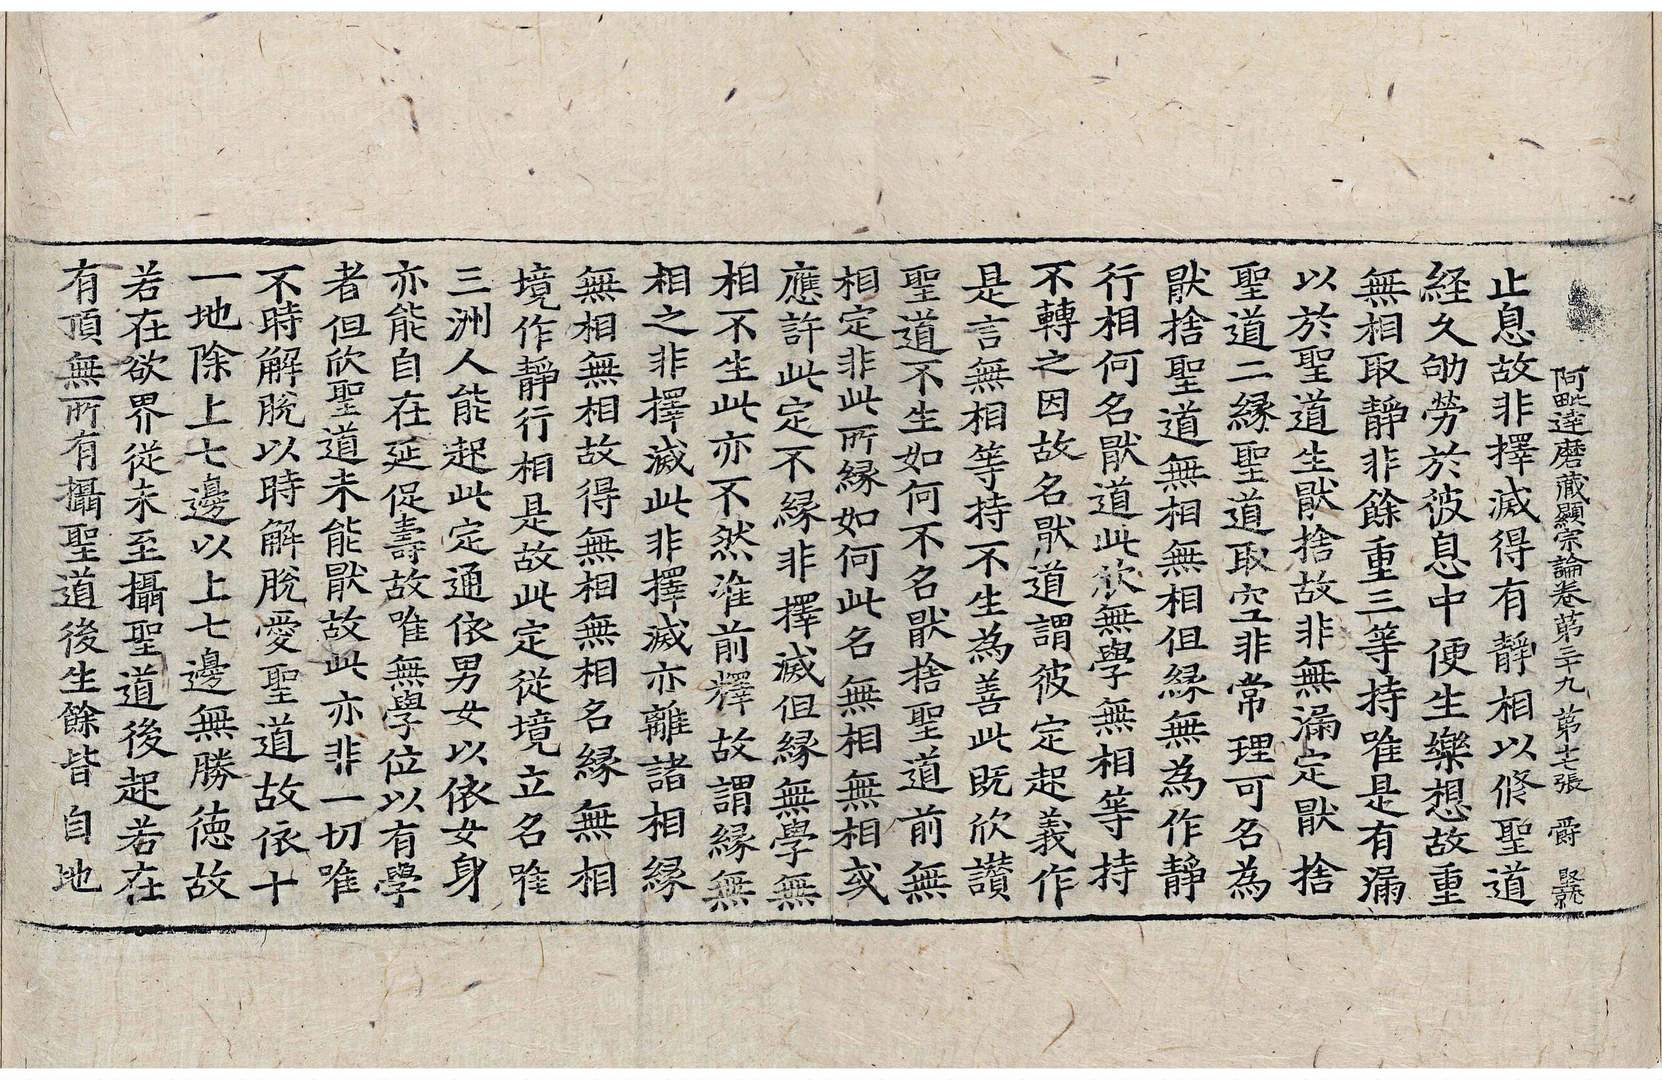 阿毗達磨藏顯宗論卷第三十九 第七張 爵
止息故非擇滅得有靜相以修聖道
経久劬勞於彼息中便生樂想故重
無相取靜非餘重三等持唯是有漏
以於聖道生猒捨故非無漏定猒捨
聖道二縁聖道取空非常理可名為
猒捨聖道無相無相但縁無為作靜
行相何名猒道此欣無學無相等持
不轉之因故名猒道謂彼定起義作
是言無相等持不生為善此既欣讃
聖道不生如何不名猒捨聖道前無
相定非此所縁如何此名無相無相或
應許此定不縁非擇滅但縁無學無
相不生此亦不然准前釋故謂縁無
相之非擇滅此非擇滅亦離諸相縁
無相無相故得無相無相名縁無相
境作靜行相是故此定從境立名唯
三洲人能起此定通依男女以依女身
亦能自在延促壽故唯無學位以有學
者但欣聖道未能猒故此亦非一切唯
不時解脫以時解脫愛聖道故依十
一地除上七邊以上七邊無勝徳故
若在欲界從未至攝聖道後起若在
有頂無所有攝聖道後生餘皆自地